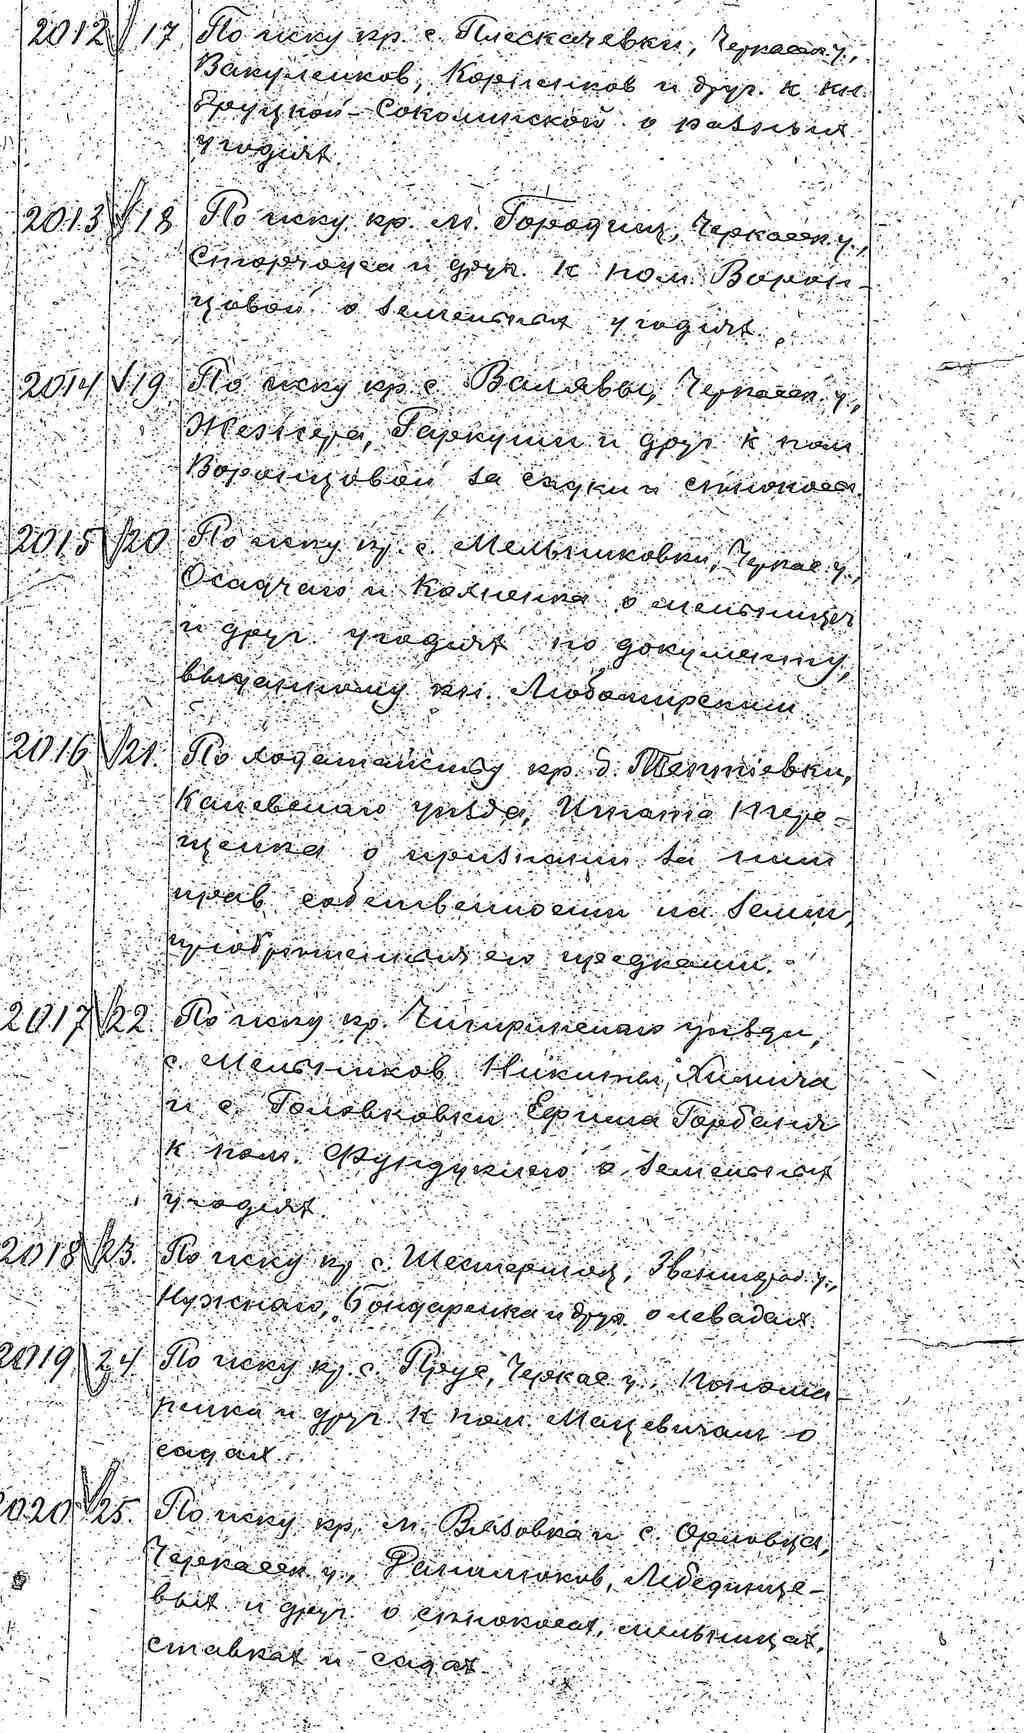 2012 17 По иску кр. с. Плескачевки, Черкасск. у.,
Вакуленков, Корниенков и друг. к кн.
Друцкой-Соколинской о разных
угодіях.
2013 18 По иску кр. м. Городищ, Черкасск. у.,
Сторчоуса и друг. к пом. Ворон-
цовой о земельных угодіях.
2014 19 По иску кр. с. Валявы, Черкасск. у.,
Гаркуши и друг. к пом.
Воронцовой за садки и сенокоса.
2015 20 По иску кр. с. Мельниковки, Черкас. у.,
Осадчаго и о мельницах
и друг. угодіях по документу,
выданному кн. Любомирским
2016 21. По ходатайству кр. д. Тептіевки,
Каневскаго уезда, Игната Тере-
щенка о признании за ним
прав собственности на земли,
приобретенныя его предками.
2017 22 По иску кр. Чигиринскаго уезда,
с. Мельников Никиты Химича
и с. Головковки Ефима Горбаня
к пом. Фундуклею о земельных
угодіях.
2018 23. По иску кр. с. Шестеринец, Звенигород. у.,
Нужнаго, Бондаренка и друг. о левадах.
2019 24 По иску кр. с. Прус, Черкас. у., Понома-
ренка и друг. к пом. Мацевичам о
садах.
2020 25. По иску кр. м. Вязовка и с. Орловца,
Черкасск. у., Лебединце-
вых и друг. о сенокосах, мельницах,
ставках и садах.